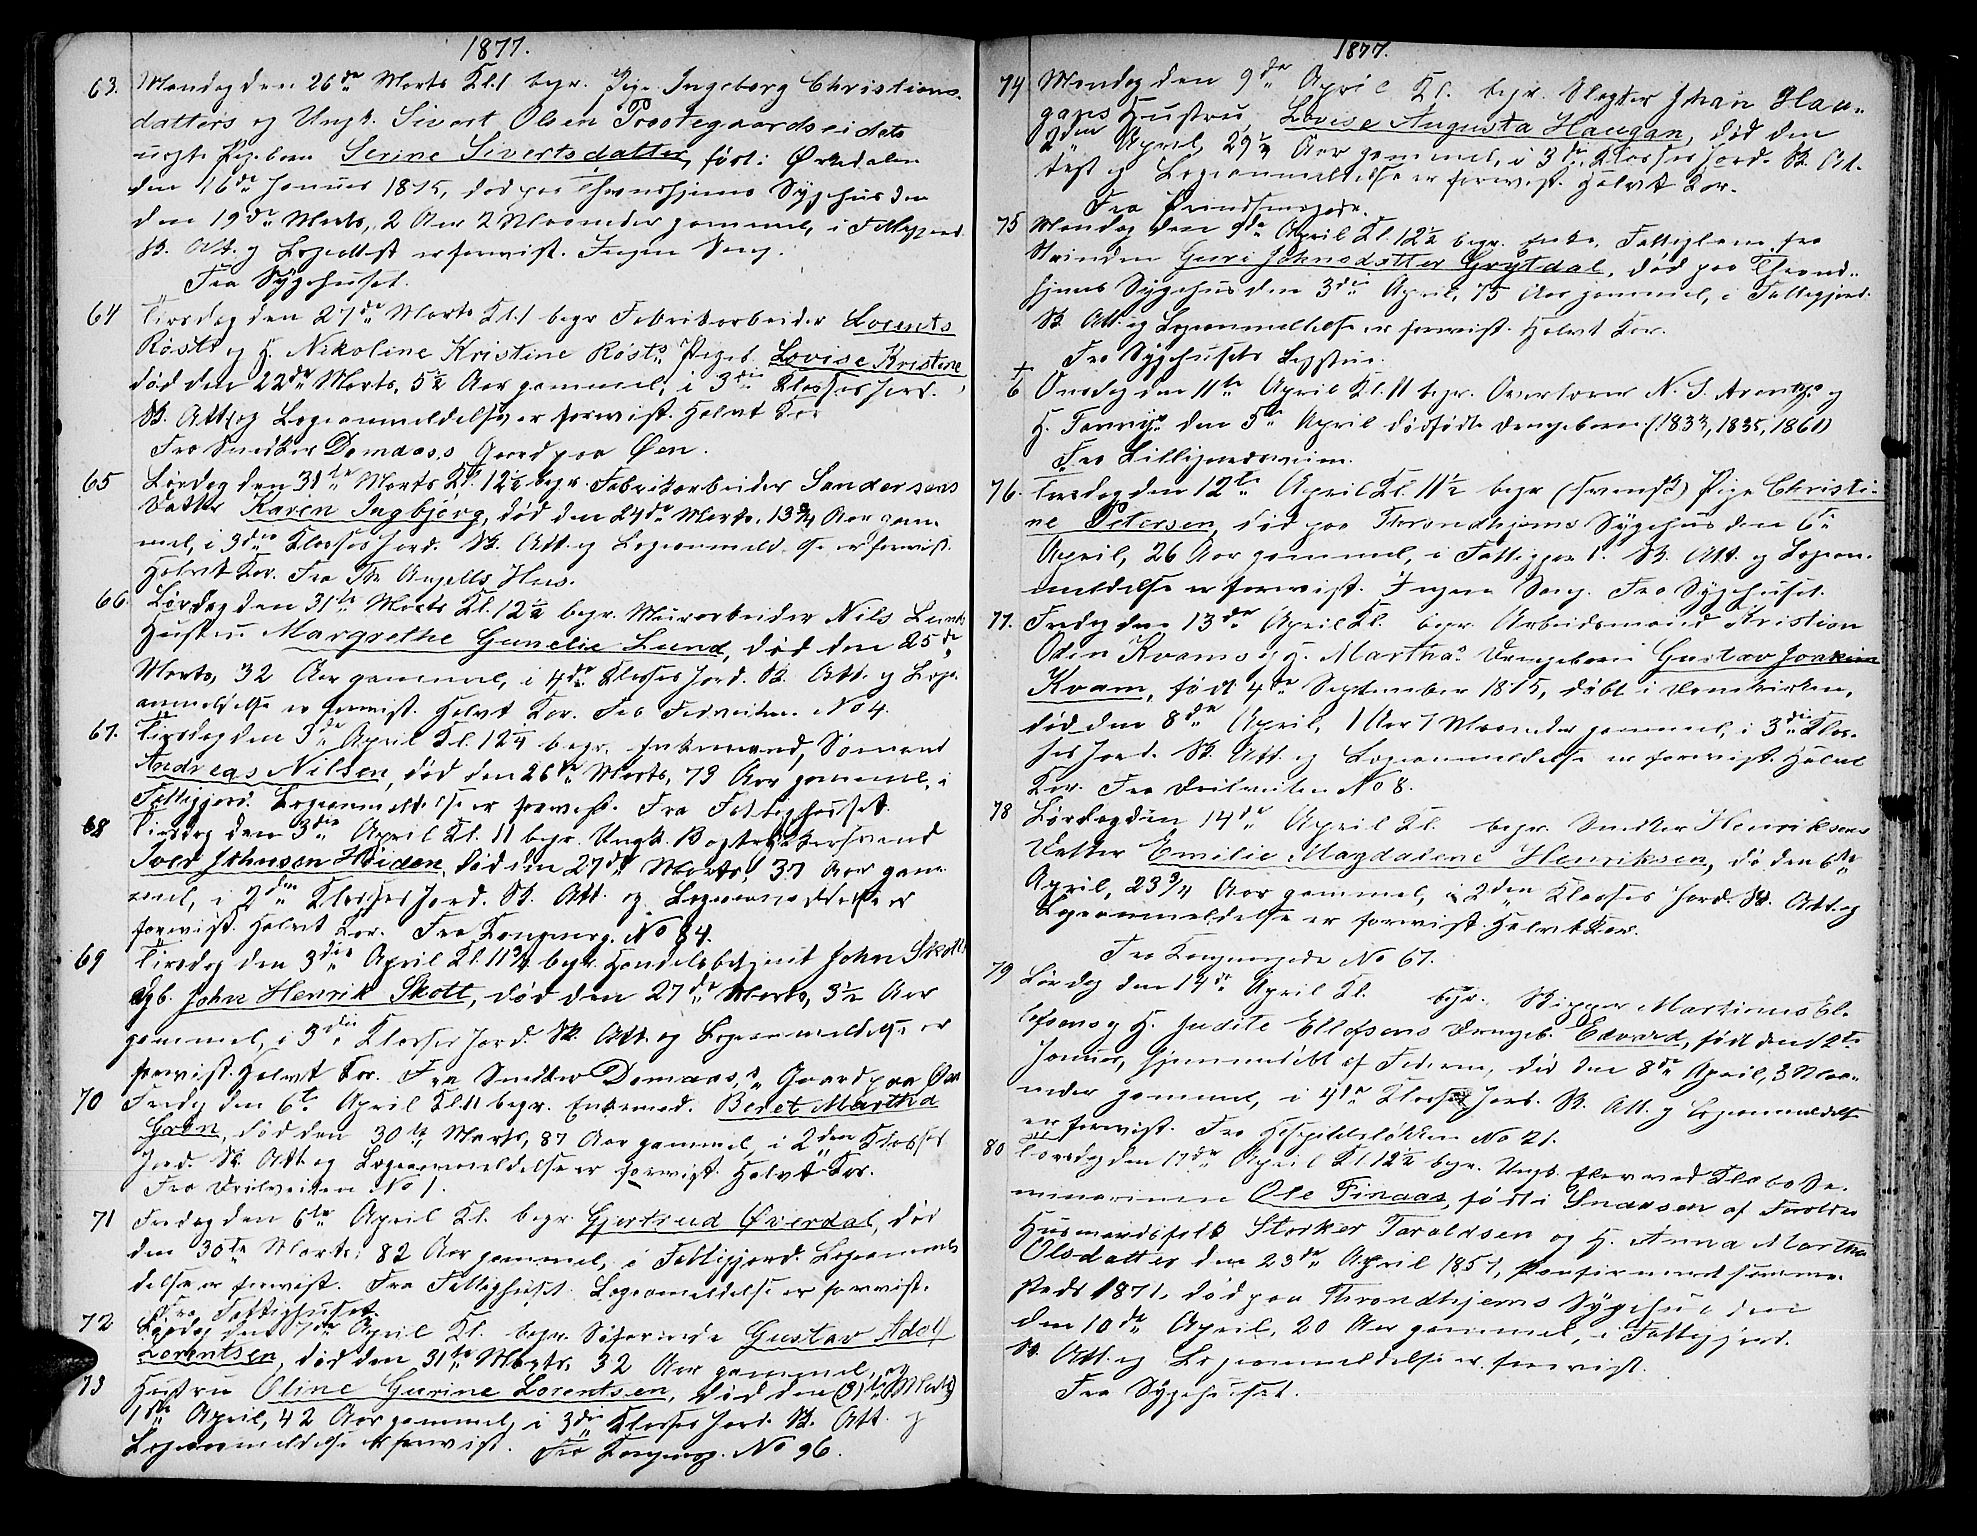 1877.
63. Mandag den 26de Marts Kl. 1 begr. Pige Ingeborg Christians-
datters og Ungk. Sivert Olsen Prostegaardseidets
uægte Pigebarn Serine Sivertsdatter, født i Ørkedalen
den 16de Januar 1875, død paa Throndhjems Sygehus den
den 19de Marts, 2 Aar 2 Maaneder gammel, i Fattigjord.
Sk. Att. og Lægeattest er forevist. Ingen Sang.
Fra Sygehuset.
64 Tirsdag den 27de Marts Kl. 1 begr Fabrikarbeider Lorents
Røsts og H. Nikoline Kristine Røsts Pigeb. Lovise Kristine,
død den 22de Marts, 5½ Aar gammel, i 3die Klasses Jord.
Sk. Att. og Lægeanmeldelse er forevist. Halvt Kor
Fra Snedker Domaas's Gaard paa Øen.
65 Lørdag den 31te Marts Kl. 12½ begr Fabrikarbeider Sandersens
Datter Karen Ingbjørg, død den 24de Marts, 13¾ Aar gam-
mel, i 3die Klasses Jord. Sk. Att. og Lægeanmeldelse er forevist.
Halvt Kor. Fra Th. Angells Hus.
66. Lørdag den 31te Marts Kl. 12½ begr. Murarbeider Nils Lunds
Hustru Margrethe Gunelie Lund, død den 25de
Marts, 32 Aar gammel, i 4de Klasses Jord. Sk. Att. og Læge-
anmeldelse er forevist. Halvt Kor. Fra No 4.
67. Tirsdag den 3de April Kl. 12¼ begr. Enkemand, Sømand
Andreas Nilsen, død den 26de Marts, 73 Aar gammel, i
Fattigjord. Lægeanmeldelse er forevist. Fra Fattighuset.
68 Tirsdag den 3die April Kl. 11 begr. Ungk. Bogtrykkersvend
Johnsen Høiden, død den 27de Marts, 37 Aar gam-
mel, i 2den Klasses Jord. Sk. Att. og Lægeanmeldelse er
forevist. Halvt Kor. Fra Kongensg. No 84.
69 Tirsdag den 3die April Kl. 11¾ begr. Handelsbetjent John Skotts
Dgb. John Henrik Skott, død den 27de Marts, 3½ Aar
gammel, i 3die Klasses Jord. Sk. Att. og Lægeanmeldelse er
forevist. Halvt Kor. Fra Snedker Domaas's Gaard paa Øen
70 Fredag den 6te April Kl. 11 begr. Enkemad. Beret Martha
Grøn, død den 30te Marts, 87 Aar gammel, i 2den Klasses
Jord. Sk. Att. og Lægeanmeldelse er forevist. Halvt Kor.
Fra No 1.
71 Fredag den 6te April Kl. begr. Gjertrud Øverdal, død
den 30te Marts, 82 Aar gammel, i Fattigjord. Lægeanmel-
delse er forevist. Fra Fattighuset Lægeanmeldelse er forevist.
Fra Fattighuset.
72 Lørdag den 7de April Kl. begr. Søfarende Gustav Adolf
Lorentsen, død den 31te Marts, 32 Aar gammel, og
73 Hustru Oline Gurine Lorentsen, død den (31te Marts)
1ste April, 42 Aar gammel, i 3die Klasses Jord. Sk. Att. og
Lægeanmeldelse er forevist. Fra Kongensg. No 96.
1877.
74 Mandag den 9de April Kl. begr. Slagter Johan Hau-
gans Hustru, Lovise Augusta Haugan, død den
2den April, 29½ Aar gammel, i 3die Klasses Jord. Sk. At-
test og Lægeanmeldelse er forevist. Halvt Kor.
Fra
75 Mandag den 9de April Kl. 12½ begr. Enke, Fattiglem fra
Strinden Guru Johnsdatter Grytdal, død paa Thrond-
hjems Sygehus den 3die April, 75 Aar gammel, i Fattigjord.
Sk. Att. og Lægeanmeldelse er forevist. Halvt Kor.
Fra Sygehusets Ligstue.
† 6 Onsdag den 11te April Kl. 11 begr. Overlærer N. S. Arentz's og
H. Fannys den 5te April dødfødte Drengebarn (1833, 1835, 1861)
Fra
76. Torsdag den 12te April Kl. 11½ begr (svensk) Pige Christi-
ne Petersen, død paa Throndhjems Sygehus den 6te
April, 26 Aar gammel, i Fattigjord. Sk. Att. og Lægean-
meldelse er forevist. Ingen Sang. Fra Sygehuset.
77. Fredag den 13de April Kl. begr. Arbeidsmand Kristian
Odin Kvams og H. Marthas Drengebarn Gustav Joakim
Kvam, født 4de September 1875, døbt i Domkirken,
død den 8de April, 1 Aar 7 Maaneder gammel, i 3die Klas-
ses Jord. Sk. Att. og Lægeanmeldelse er forevist. Halvt
Kor. Fra No 8.
78 Lørdag den 14de April Kl. begr. Snedker Henriksens
Datter Emilie Magdalene Henriksen, dø den 6te
April, 23¾ Aar gammel, i 2den Klasses Jord. Sk. Att. og
Lægeanmeldelse er forevist. Halvt Kor.
Fra Kongensgade No 67.
79 Lørdag den 14de April Kl. begr. Skipper Martinus El-
lefsens og H. Judite Ellefsens Drengeb. Edvard, født den 12te
Januar, hjemmedøbt af Faderen, død den 8de April, 3 Maa-
neder gammel, i 4de Klasses Jord. Sk. Att. og Lægeanmeldelse
er forevist. Fra Hospitalsløkken No 21.
80 Torsdag den 17de April Kl. 12½ begr. Ungk. Elev ved Klæbo Se-
minarium Ole Finaas, født i Snaasen af Forældre
Husmandsfolk Storker Taraldsen og H. Anna Martha
Olsdatter den 23de April 1857, konfirmeret samme-
steds 1871, død paa Throndhjems Sygehus den
den 10de April, 20 Aar gammel, i Fattigjord.
Sk. Att. og Lægeanmeldelse er forevist.
Fra Sygehuset.